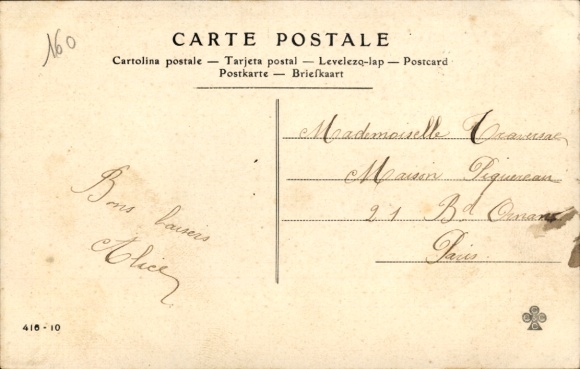 N60
CARTE POSTALE
Cartolina postale — Tarjeta postal — Levelezq-lap — Postcard
Postkarte — Briefkaart
Mademoiselle Traversac
Maison Piquereau
21 Bd Ornano
Paris
Bons baisers
Alice
416 - 10